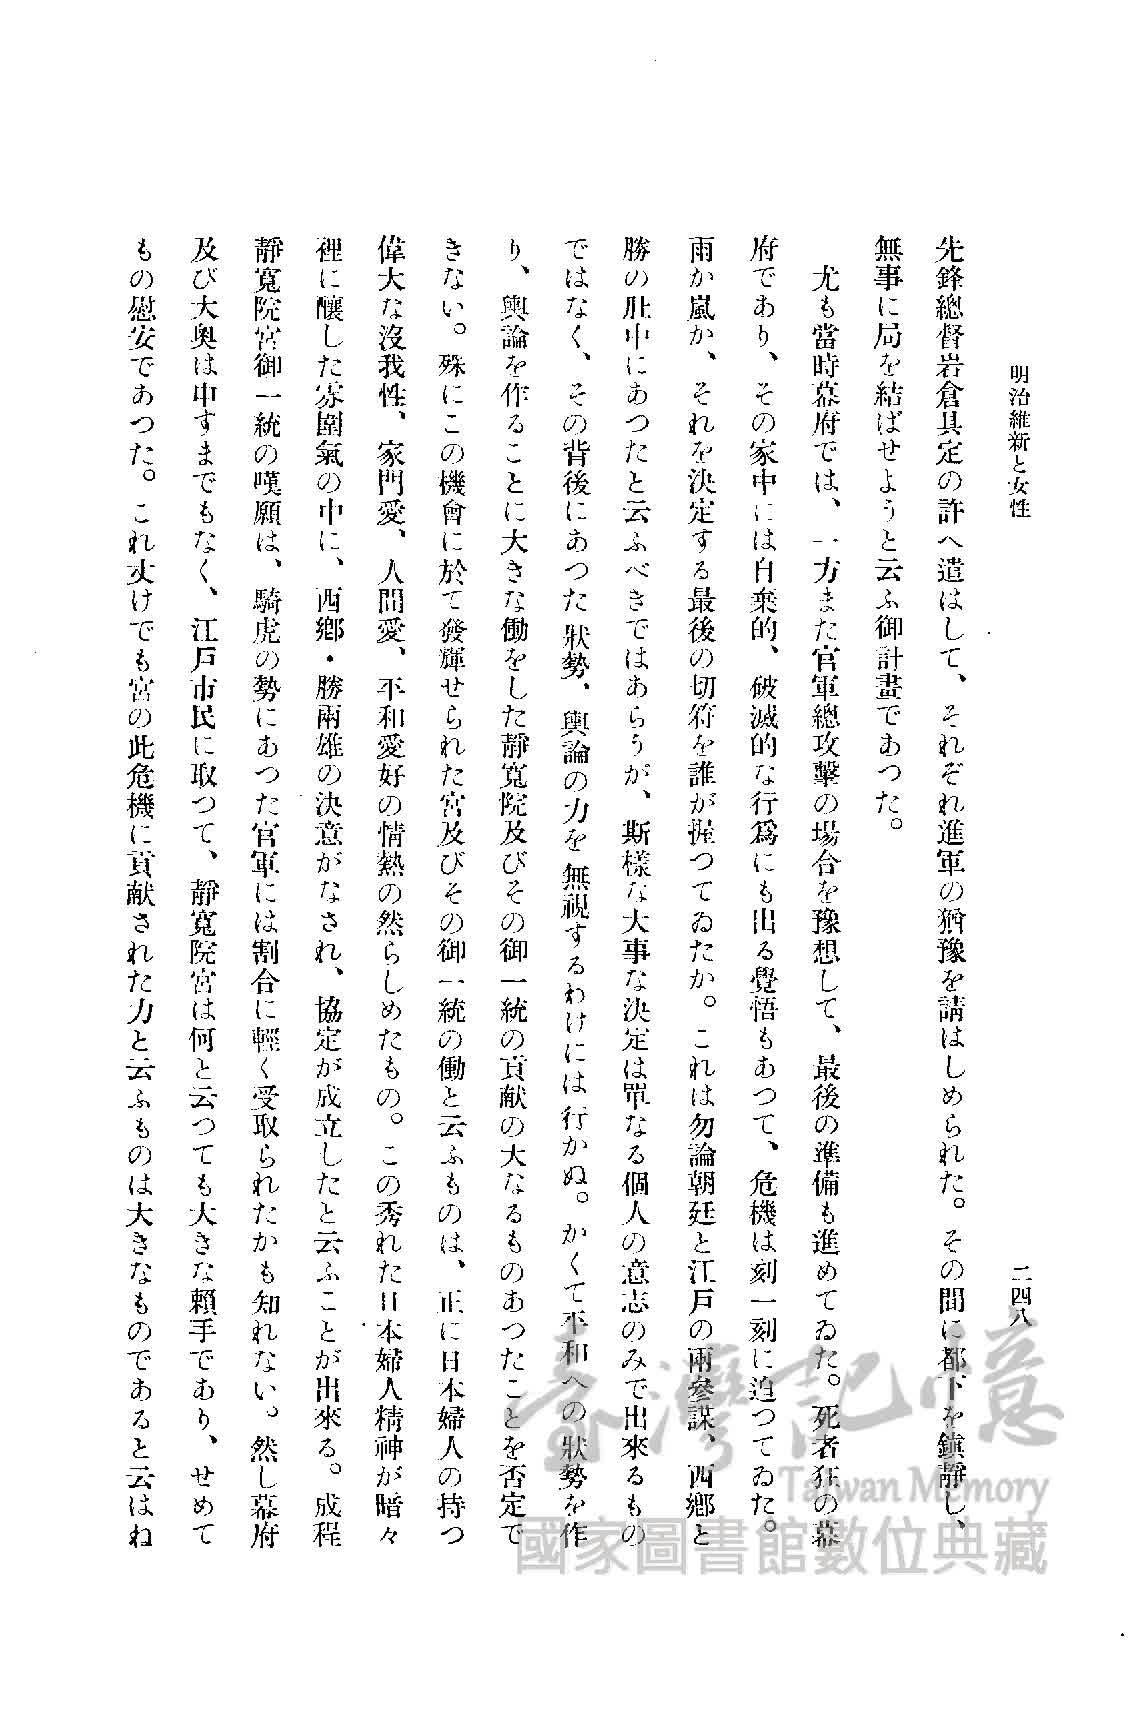 明治維新と女性
二四八
先鋒總督岩倉具定の許へ遣はして、それぞれ進軍の猶豫を請はしめられた。その間に都下を鎭靜し、
無事に局を結ばせようと云ふ御計畫であつた。
尤も當時幕府では、一方また官軍總攻擊の場合を豫想して、最後の準備も進めてゐた。死者狂の幕
府であり、その家中には自棄的、破滅的な行爲にも出る覺悟もあつて、危機は刻一刻に迫つてゐた。
雨か嵐か、それを決定する最後の切符を誰が握つてゐたか。これは勿論朝廷と江戸の兩參謀、西鄕と
勝の肚中にあつたと云ふべきではあらうが、斯樣な大事な決定は單なる個人の意志のみで出來るもの
ではなく、その背後にあつた狀勢、輿論の力を無視するわけには行かぬ。かくて平和への狀勢を作
り、輿論を作ることに大きな働をした靜寬院及びその御一統の貢献の大なるものあつたことを否定で
きない。殊にこの機會に於て發輝せられた宮及びその御一統の働と云ふものは、正に日本婦人の持つ
偉大な沒我性、家門愛、人間愛、平和愛好の情熱の然らしめたもの。この秀れた日本婦人精神が暗々
裡に釀した雰圍氣の中に、西鄕・勝兩雄の決意がなされ、協定が成立したと云ふことが出來る。成程
靜寬院宮御一統の嘆願は、騎虎の勢にあつた官軍には割合に輕く受取られたかも知れない。然し幕府
及び大奧は申すまでもなく、江戸市民に取つて、靜寬院宮は何と云つても大きな賴手であり、せめて
もの慰安であつた。これ丈けでも宮の此危機に貢献された力と云ふものは大きなものであると云はね
臺灣記憶
Taiwan Memory
國家圖書館數位典藏